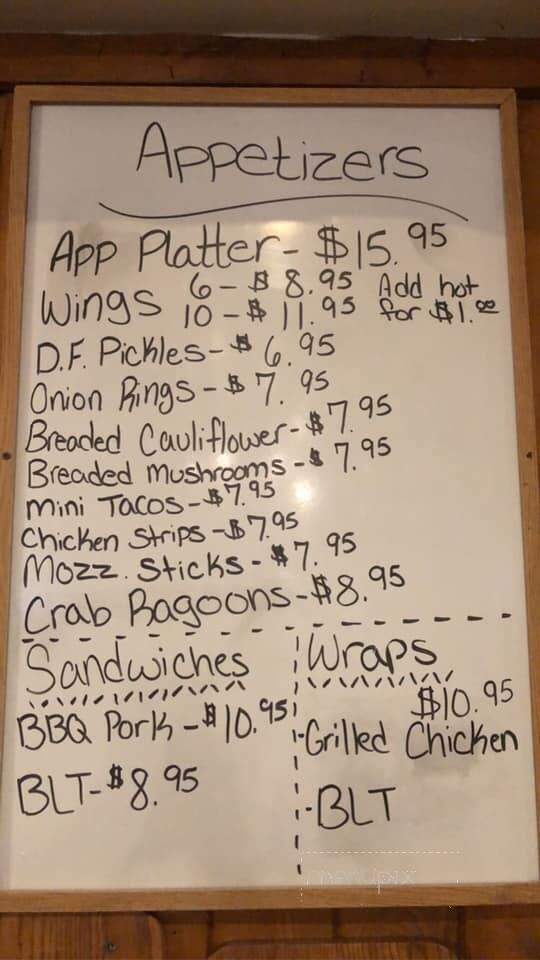 Appetizers
App Platter- $15.95
Wings 6 - $ 8.95 Add hot
10 - $ 11.95 for $1.00
D.F. Pickles- $6.95
Onion Rings - $7.95
Breaded Cauliflower- $7.95
Breaded Mushrooms - $7.95
Mini Tacos - $7.95
Chicken Strips - $7.95
Mozz. Sticks - $7.95
Crab Ragoons - $8.95
Sandwiches
BBQ Pork - $10.95
BLT- $8.95
Wraps
$10.95
·Grilled Chicken
·BLT
menupix